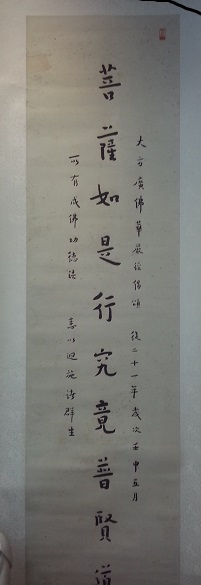 大方廣佛華嚴經偈頌 後二十一年歲次壬申五月
菩薩如是行究竟普賢道
所有成佛功德法 悉以迴施諸群生